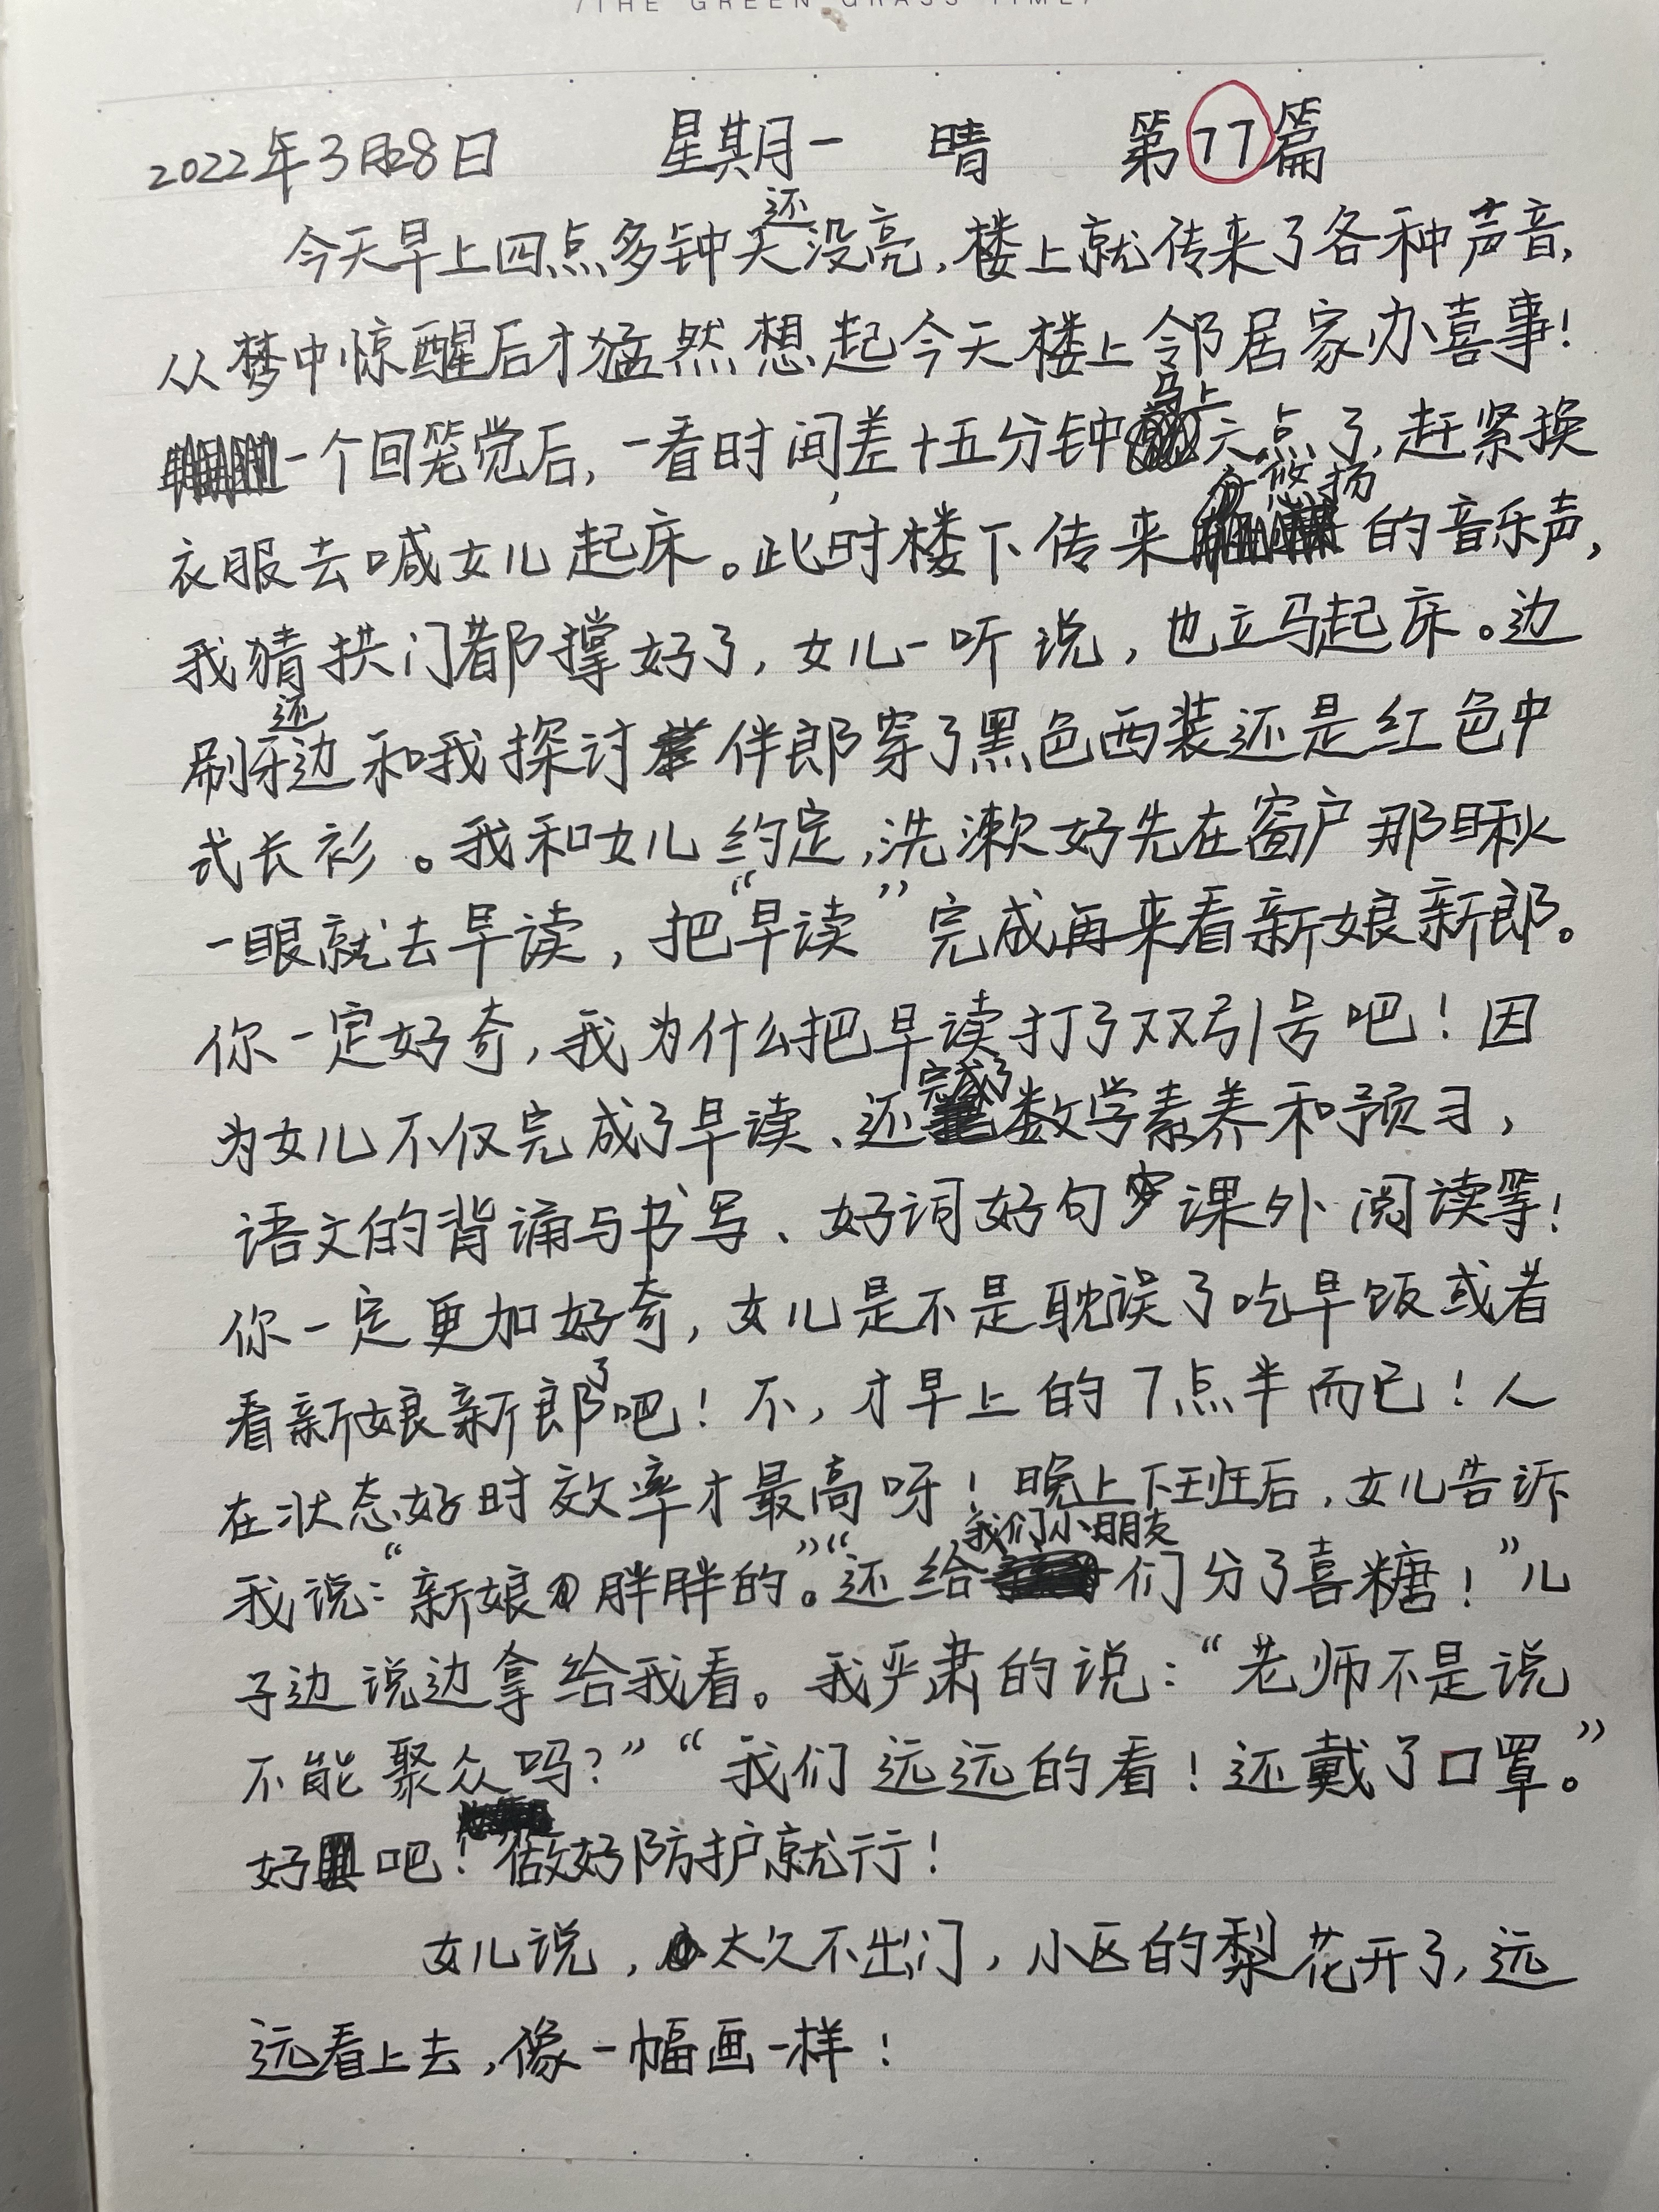 /THE GREEN GRASS TIME/
2022年3月28日 星期一 晴 第77篇
今天早上四点多钟天还没亮,楼上就传来了各种声音,
从梦中惊醒后才猛然想起今天楼上邻居家办喜事!
一个回笼觉后,一看时间,差十五分钟马上六点了,赶紧换
衣服去喊女儿起床。此时楼下传来悠扬的音乐声,
我猜拱门都撑好了,女儿一听说,也立马起床。边
刷牙还边和我探讨伴郎穿了黑色西装还是红色中
式长衫。我和女儿约定,洗漱好先在窗户那瞅
一眼就去早读,把“早读”完成再来看新娘新郎。
你一定好奇,我为什么把早读打了双引号吧!因
为女儿不仅完成了早读、还完成了数学素养和预习,
语文的背诵与书写、好词好句课外阅读等!
你一定更加好奇,女儿是不是耽误了吃早饭或者
看新娘新郎了吧!不,才早上的7点半而已!人
在状态好时效率才最高呀!晚上下班后,女儿告诉
我说:“新娘胖胖的。”“还给我们小朋友们分了喜糖!”儿
子边说边拿给我看。我严肃的说:“老师不是说
不能聚众吗?”“我们远远的看!还戴了口罩。”
好吧!做好防护就行!
女儿说,太久不出门,小区的梨花开了,远
远看上去,像一幅画一样!